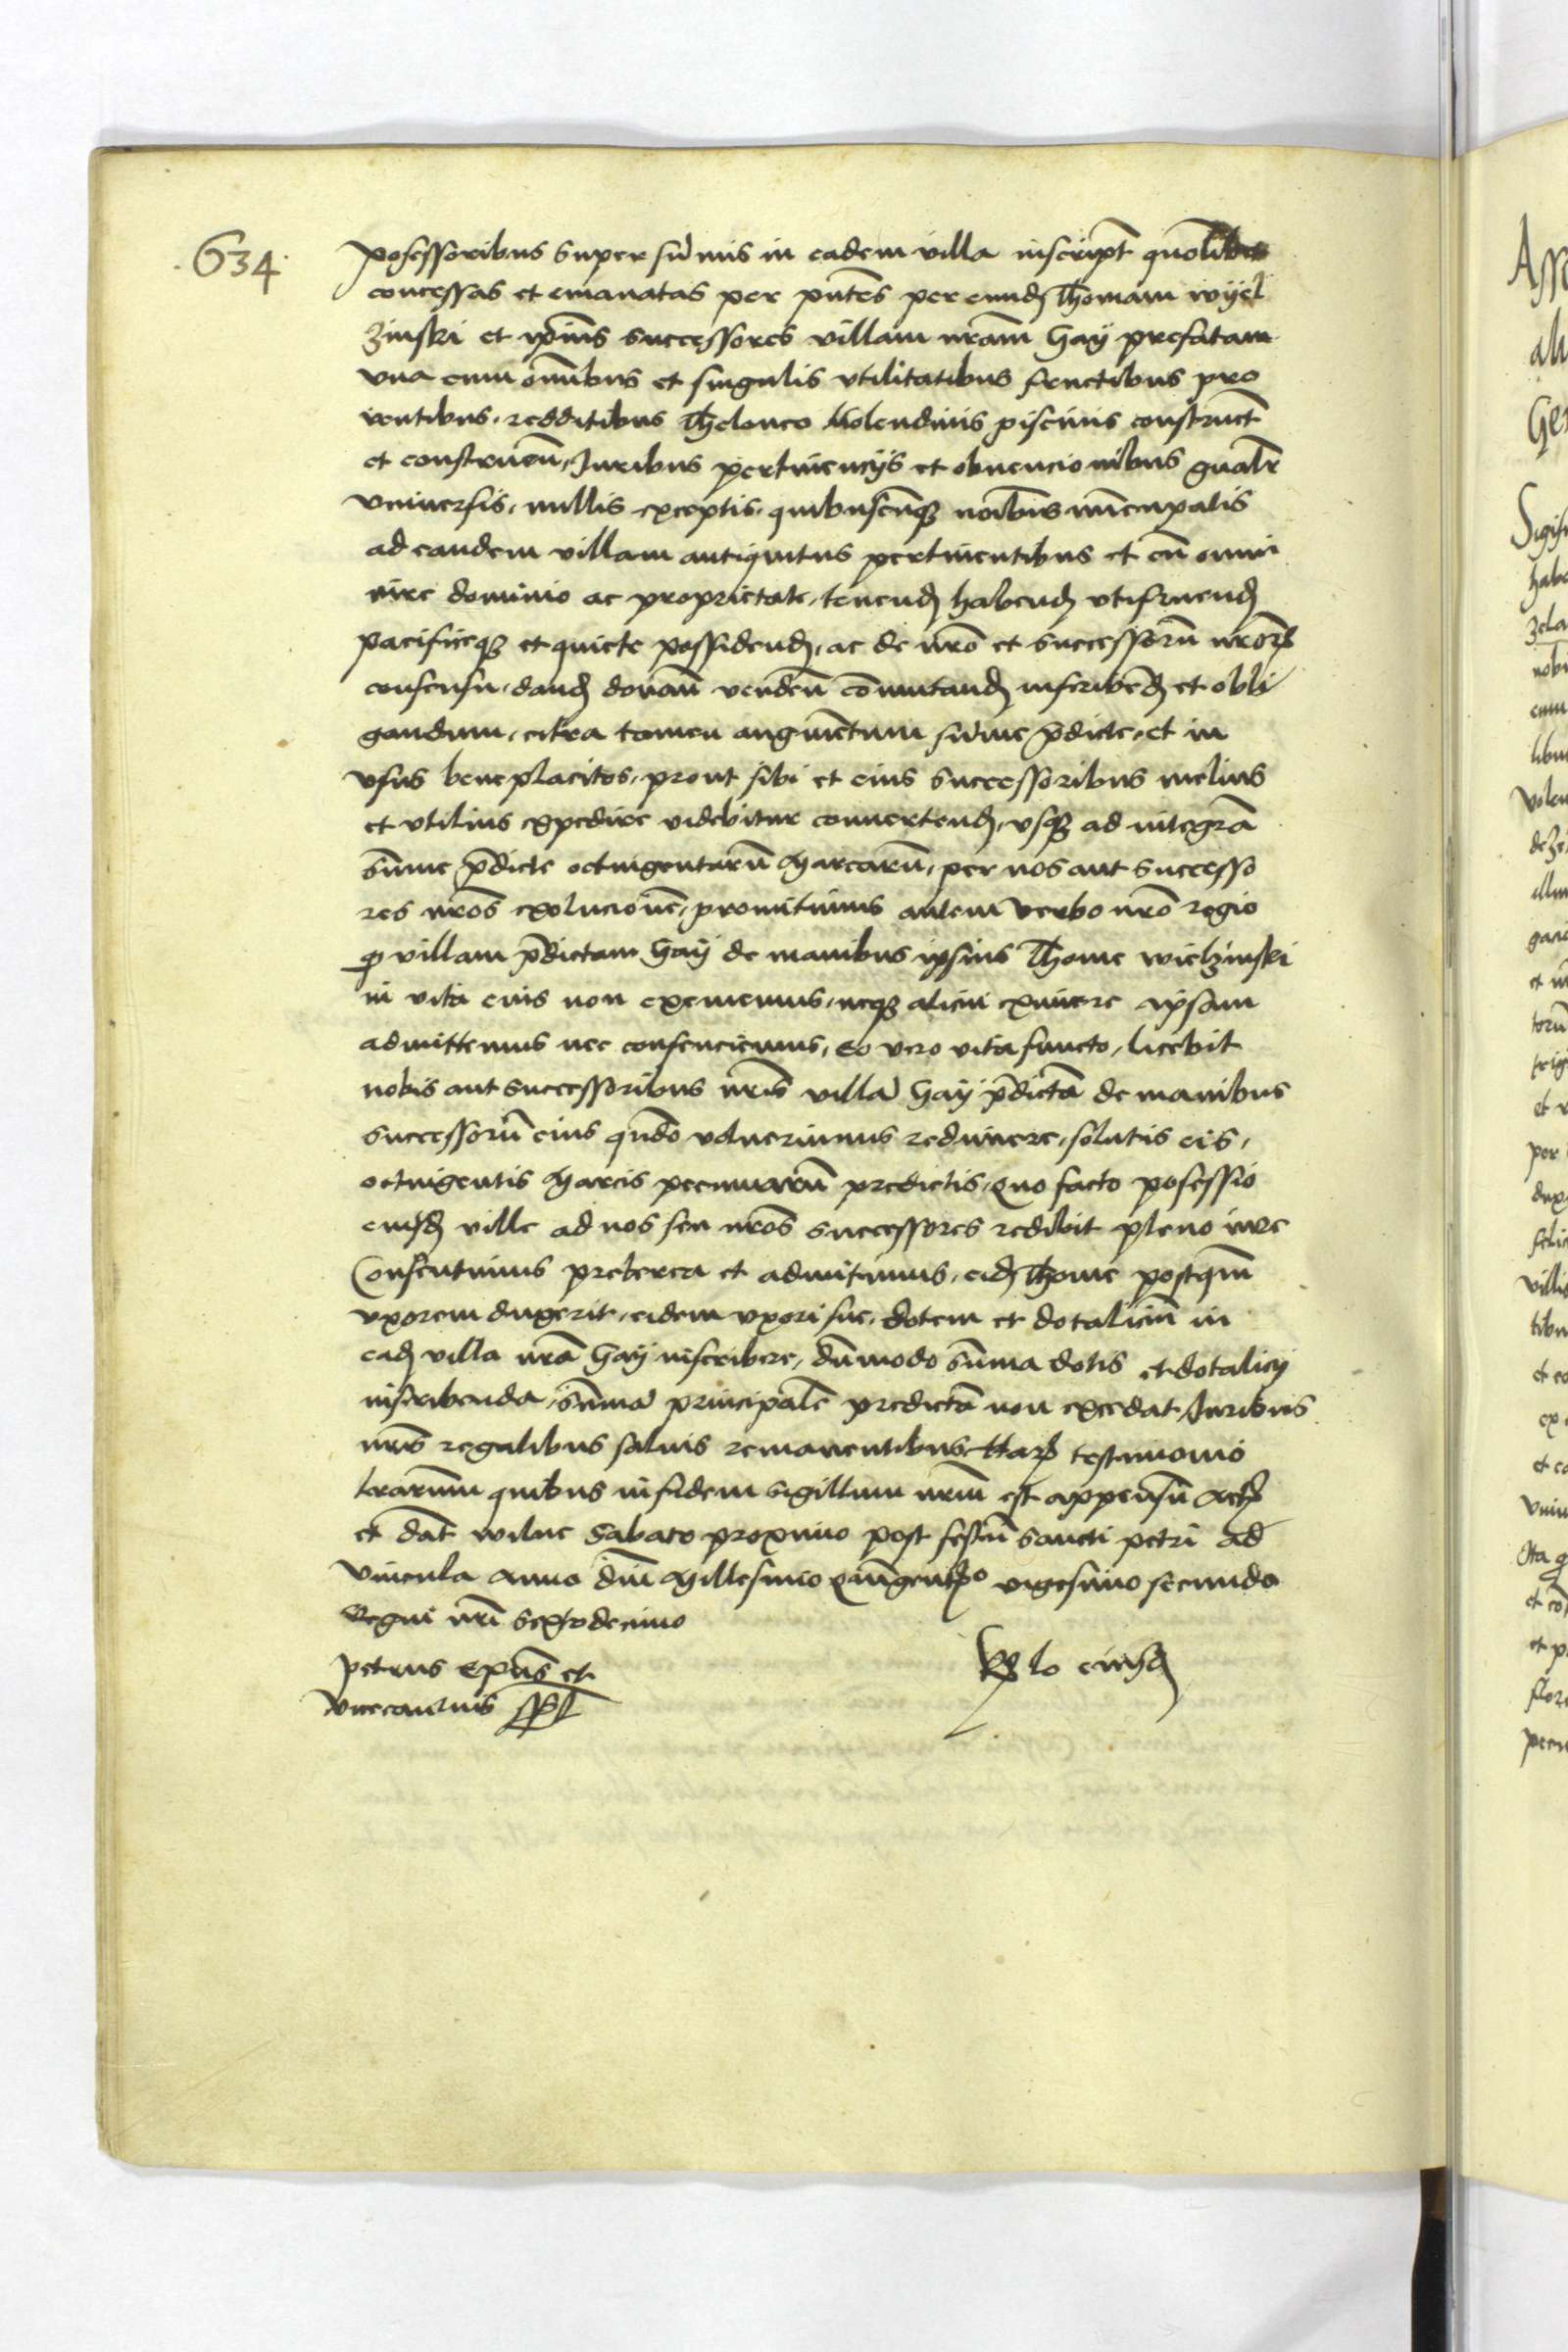 .634.
possessoribus super sũmis in eadem villa inscript quolibet
concessas et emanatas per pn̄tes per eund Thomam wijel
zinski et ip̄ius successores villam nrām Gay prefatam
vna cum om̄ibus et singulis vtilitatibus fructibus pro
uentibus, redditibus Theloneo Molendinis piscinis construct
et construeñ, Juribus pertinencijs et obuencionibus gn̄aliter
vniuersis, nullis exceptis, quibuscūq noībus nūcupatis
ad eandem villam antiquitus pertinentibus et cū omni
iure dominio ac proprietate, tenend habend vtifruend
pacificeq et quiete possidend, ac de nrō et successorū nrōrꝝ
consensu, dand donañ vendeñ cōmutand inscribend et obli
gandum, citra tamen augmentum sūme p̄dicte, et in
vsus beneplacitos, prout sibi et eius successoribus melius
et vtilius expedire videbitur conuertend, vsq ad integrā
sūme p̄dicte octingentarū Marcarū, per nos aut successo
res nrōs exolucionē, promittimus autem verbo nrō regio
ꝙ villam p̄dictam Gay de manibus ipsius Thome wielzinski
in vita eius non eximemus, neq alicui eximere ipsam
admittemus nec consenciemus, Eo vero vita functo, licebit
nobis aut successoribus nrīs villā Gay p̄dictā de manibus
successorū eius qn̄do voluerimus redimere, solutis eis,
octingentis Marcis pecuniarū predictis, Quo facto possessio
eiusd ville ad nos seu nrōs successores redibit pleno iure
Consentimus preterea et admittimus, eid Thome postq̄m
vxorem duxerit, eidem vxori sue, dotem et dotaliciū in
ead villa nrā Gay inscribere, dūmodo sūma dotis et dotalicij
inscribenda, sūmā principalē predictā non excedat, Juribus
nrīs regalibus saluis remanentibus Harꝝ testimonio
lrārum quibus in fidem sigillum nrūm est appensū Act
et dat wilne Sabato proximo post festū sancti petri ad
vincula Anno dn̄i Millesimo Quīgentº vigesimo secundo
Regni nrī sextodecimo
petrus Ep̄us et
vicecan̄rius sst
Rlo eiusd